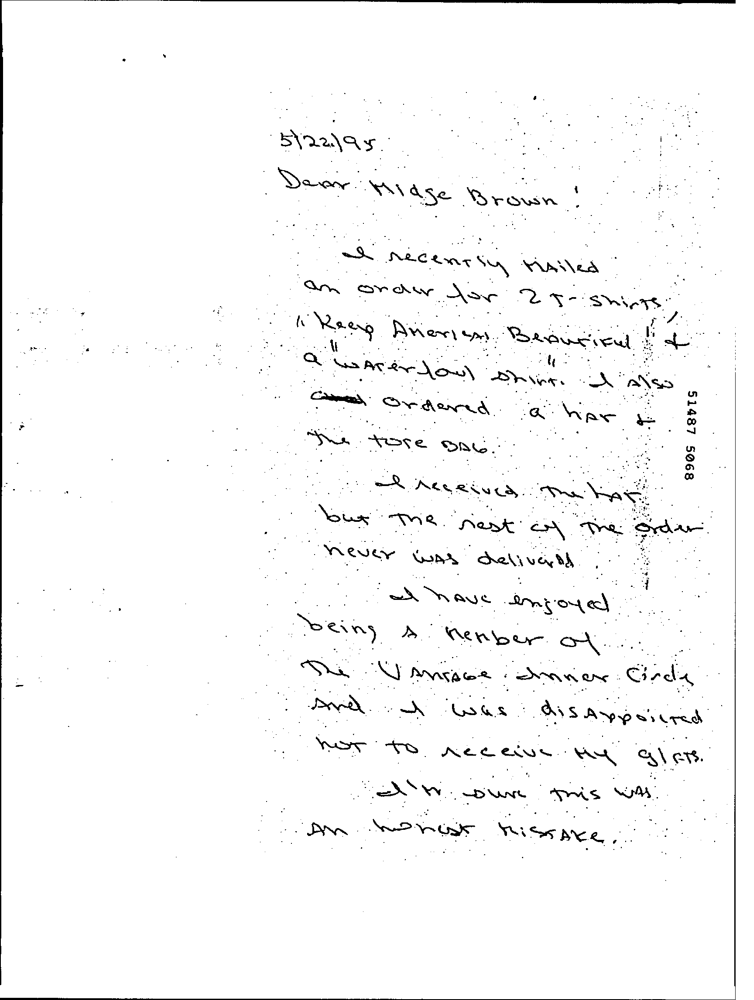 5/22/95
Dear Midge Brown!
I recently mailed
an order for 2 T-shirts,
"Keep American Beautiful" &
a "waterfowl" shirt. I also
ordered a hat &
the tote bag.
I received the hat
but the rest of the order
never was delivered.
I have enjoyed
being a member of
the Vantage Inner Circle
and I was disappointed
not to receive my gifts.
I'm sure this was
an honest mistake.
51487 5068